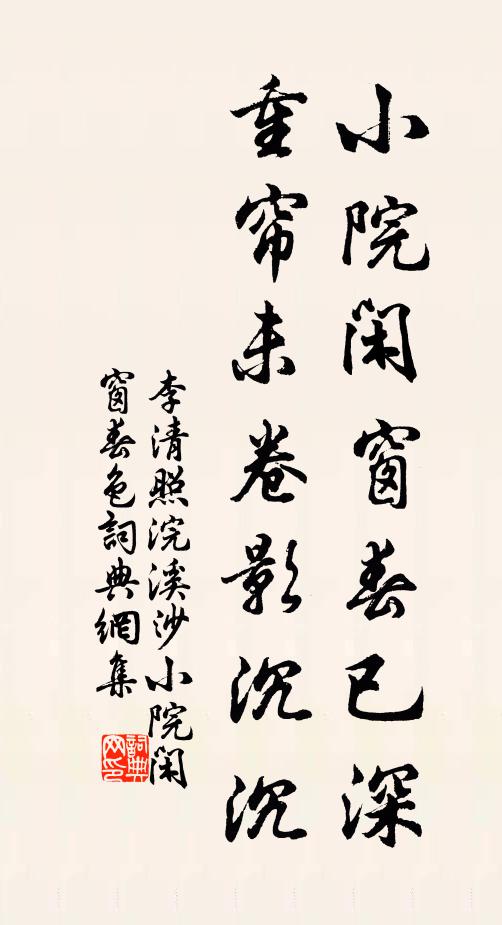 小院閑窗春已深
重帘未卷影沉沉
李清照浣溪沙小院閑
窗春色詞典網集
詞典網印